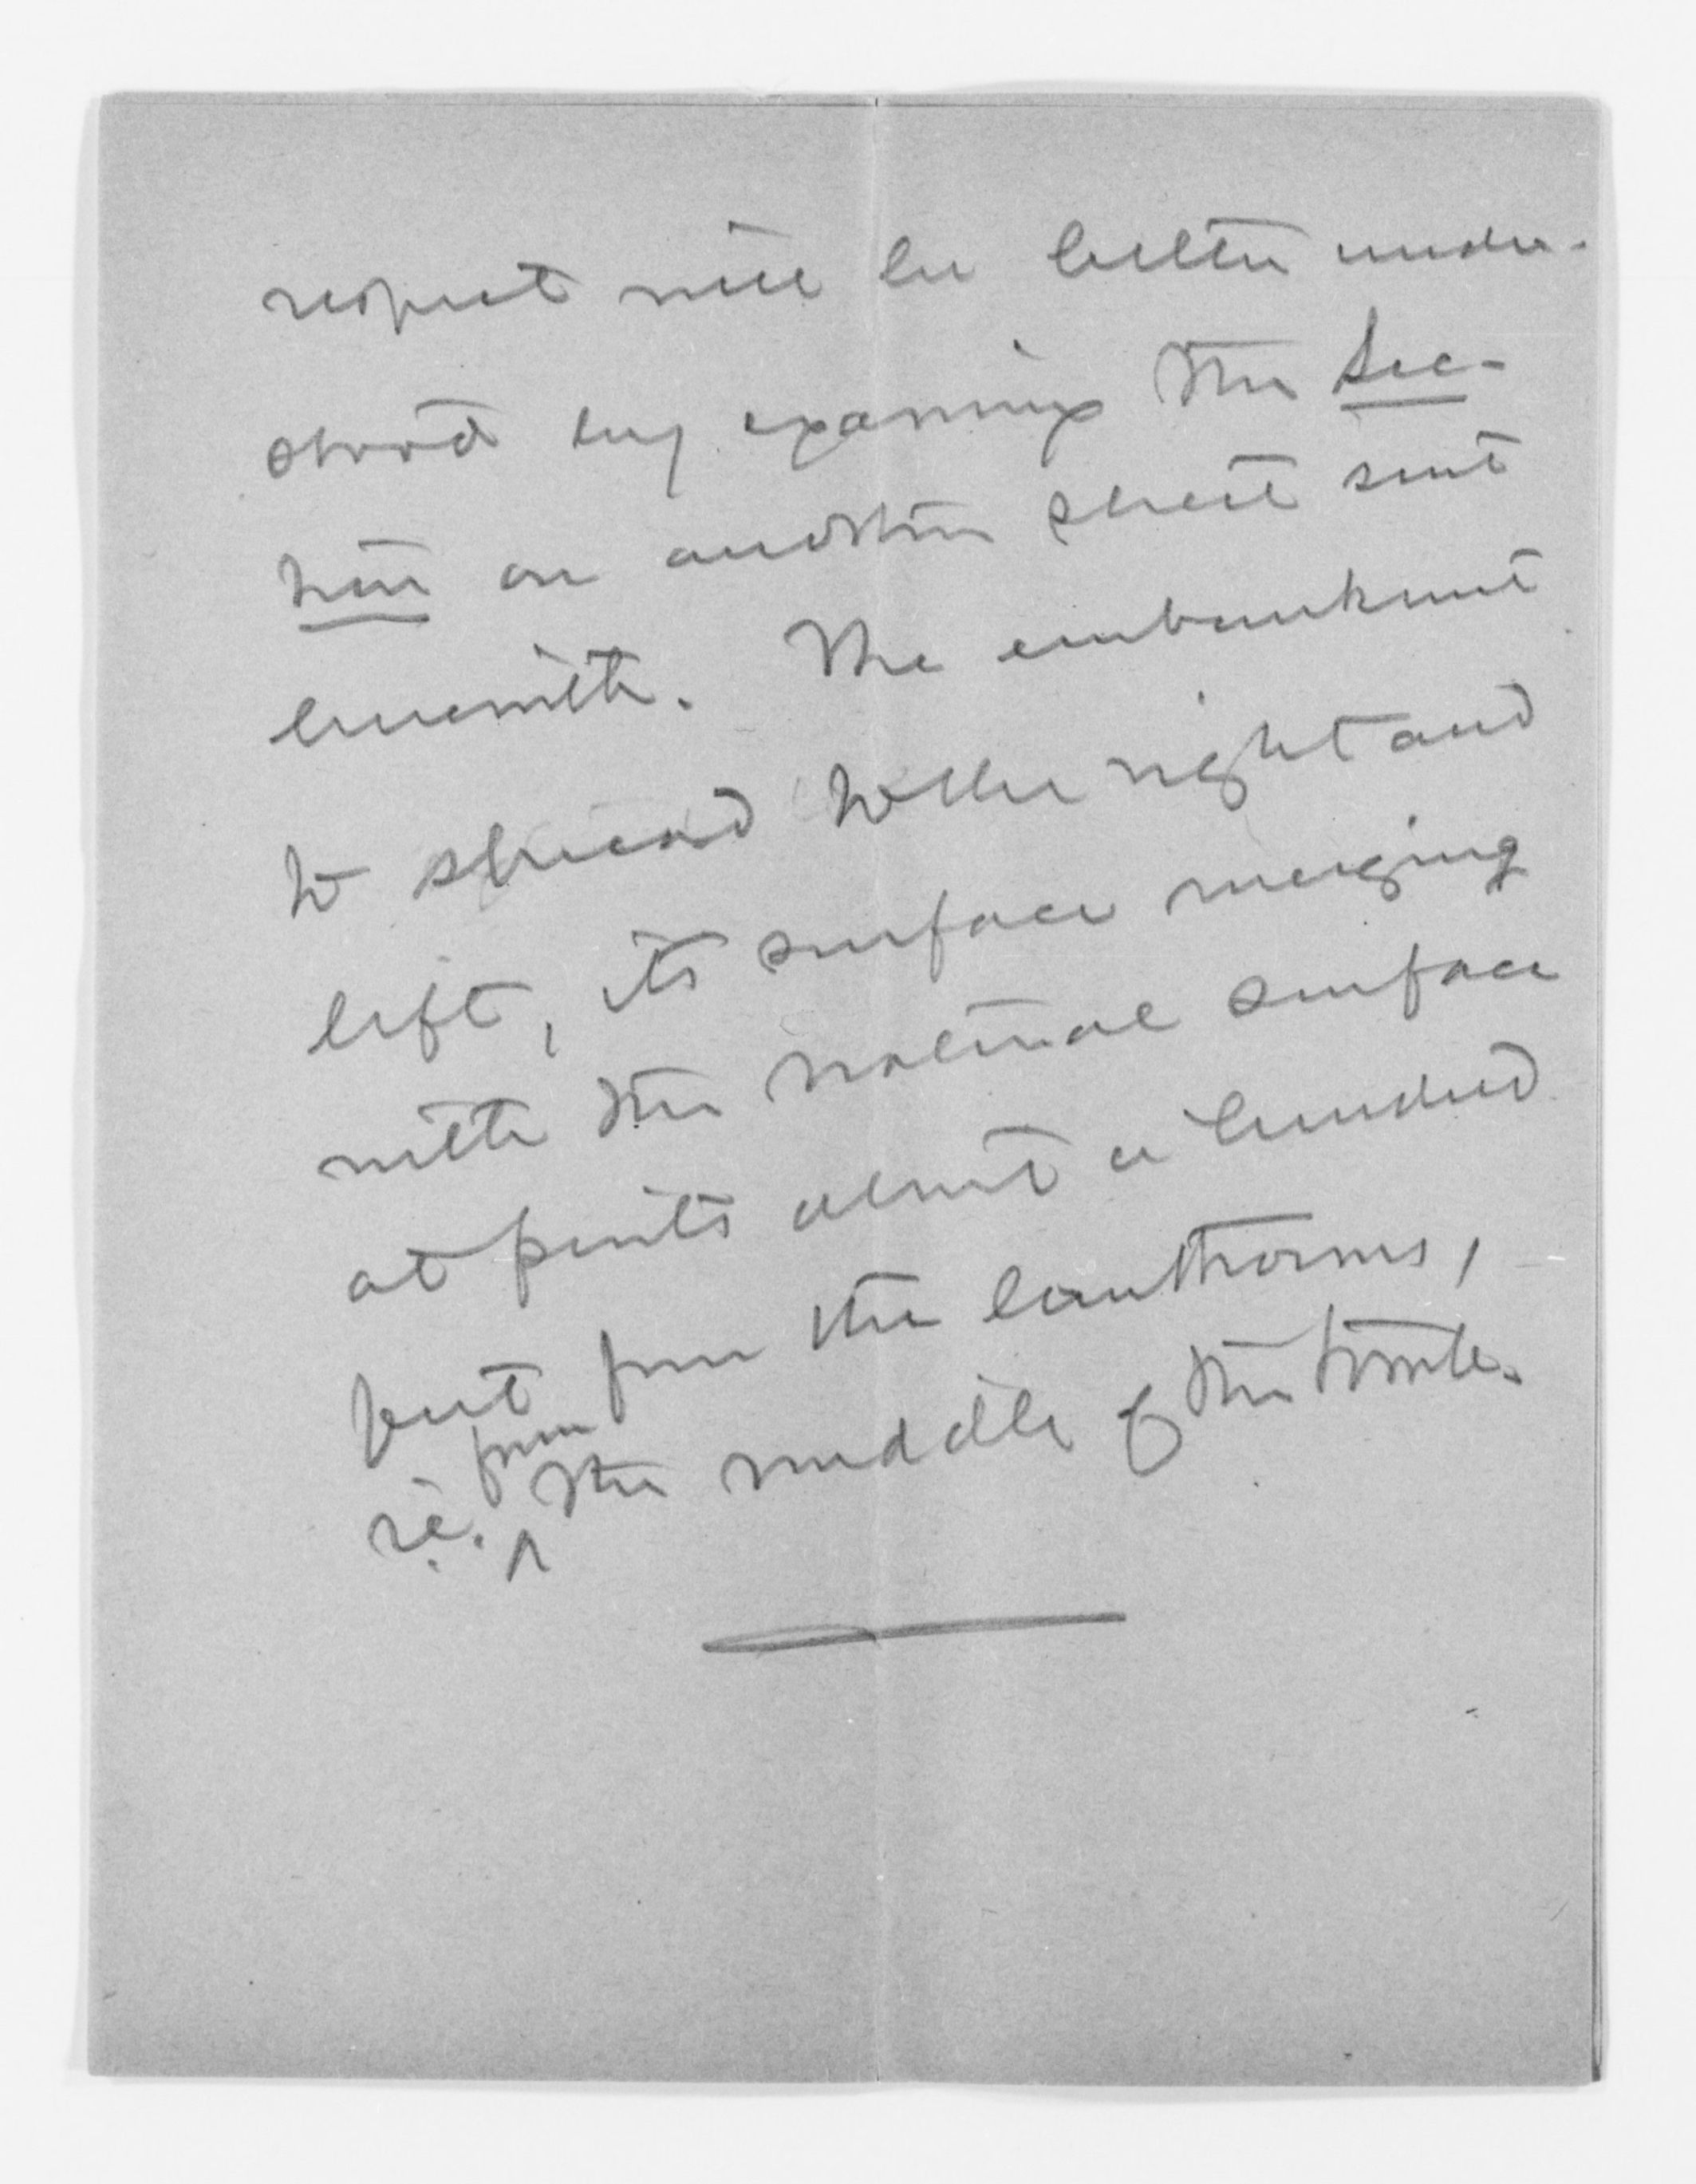 respect will be better under-
stood by examing the Sec-
tion on another sheet sent
herewith. The embankment
to spread to the right and
left, its surface merging
with the natural surface
at points about a hundred
feet from the
i.e. from the middle of the tomb.